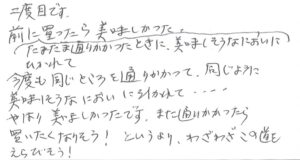 二度目です。
前に買ったら美味しかった。
たまたま通りかかったときに、美味しそうなにおいに
ひかれて
今度も同じところを通りかかって、同じように
美味しそうなにおいに引かれて・・・・
やはり美味しかったです。また通りかかったら
買いたくなりそう！というより、わざわざこの道を
えらびそう！